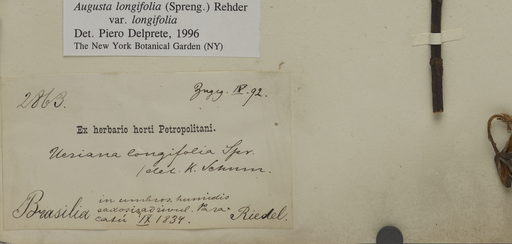 Augusta longifolia (Spreng.) Rehder
var. longifolia
Det. Piero Delprete, 1996
The New York Botanical Garden (NY)
2863.
Zugg. IX. 92.
Ex herbario horti Petropolitani.
Ucriana longifolia Spr.
/det. K. Schum.
Brasilia in umbros. humidis
Para-
catú IX 1834. Riedel.